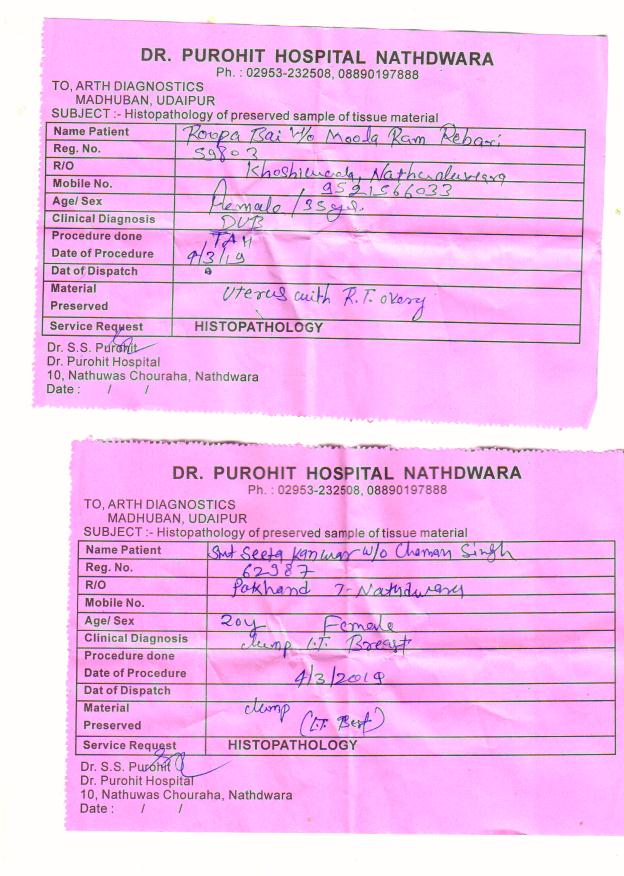 DR. PUROHIT HOSPITAL NATHDWARA
Ph. : 02953-232508, 08890197888
TO, ARTH DIAGNOSTICS
MADHUBAN, UDAIPUR
SUBJECT :- Histopathology of preserved sample of tissue material
Name Patient Roopa Bai W/o Moola Ram Rebari
Reg. No. 59803
R/O Nathdwara
Mobile No. 9521566033
Age/ Sex Female /35 ys.
Clinical Diagnosis DUB
Procedure done TAH
Date of Procedure 4/3/19
Dat of Dispatch
Material Uterus with R.T. ovary
Preserved
Service Request HISTOPATHOLOGY
Dr. S.S. Purohit
Dr. Purohit Hospital
10, Nathuwas Chouraha, Nathdwara
Date : / /
DR. PUROHIT HOSPITAL NATHDWARA
Ph. : 02953-232508, 08890197888
TO, ARTH DIAGNOSTICS
MADHUBAN, UDAIPUR
SUBJECT :- Histopathology of preserved sample of tissue material
Name Patient Smt Seeta Kanwar W/o Chaman Singh
Reg. No. 62987
R/O Pakhand T- Nathdwara
Mobile No.
Age/ Sex 20y Female
Clinical Diagnosis Lump LT. Breast
Procedure done
Date of Procedure 4/3/2019
Dat of Dispatch
Material Lump
Preserved (LT. Brest)
Service Request HISTOPATHOLOGY
Dr. S.S. Purohit
Dr. Purohit Hospital
10, Nathuwas Chouraha, Nathdwara
Date : / /